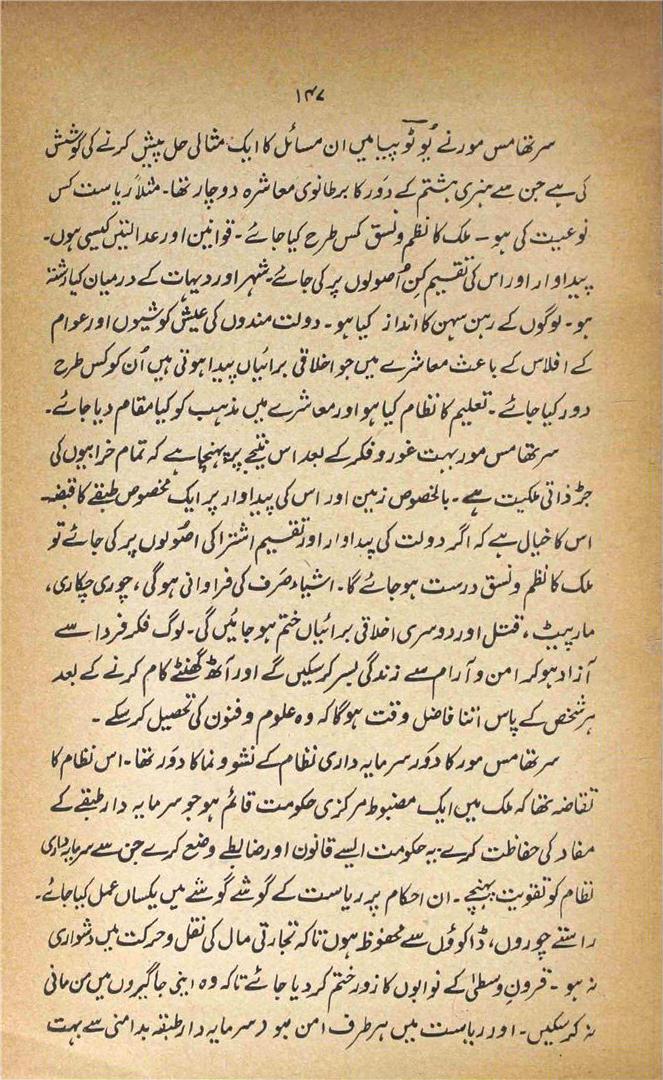 ۱۴۷
سر تھامس مور نے یُوٹوپیا میں ان مسائل کا ایک مثالی حل پیش کرنے کی کوشش
کی ہے جن سے ہنری ہشتم کے دَور کا برطانوی معاشرہ دو چار تھا۔ مثلاً ریاست کس
نوعیت کی ہو ۔ ملک کا نظم و نسق کس طرح کیا جائے ۔ قوانین اور عدالتیں کیسی ہوں۔
پیداوار اور اس کی تقسیم کِن اُصولوں پر کی جائے۔ شہر اور دیہات کے درمیان کیا رشتہ
ہو ۔ لوگوں کے رہن سہن کا انداز کیا ہو ۔ دولت مندوں کی عیش کوشیوں اور عوام
کے افلاس کے باعث معاشرے میں جو اخلاقی برائیاں پیدا ہوتی ہیں اُن کو کس طرح
دور کیا جائے ۔ تعلیم کا نظام کیا ہو اور معاشرے میں مذہب کو کیا مقام دیا جائے۔
سر تھامس مور بہت غور و فکر کے بعد اس نتیجے پر پہنچا ہے کہ تمام خرابیوں کی
جڑ ذاتی ملکیت ہے ۔ بالخصوص زمین اور اس کی پیداوار پر ایک مخصوص طبقے کا قبضہ۔
اس کا خیال ہے کہ اگر دولت کی پیداوار اور تقسیم اشتراکی اصُولوں پر کی جائے تو
ملک کا نظم و نسق درست ہو جائے گا ۔ اشیاء صَرف کی فراوانی ہوگی ، چوری چکاری،
مار پیٹ ، قتل اور دوسری اخلاقی برائیاں ختم ہو جائیں گی ۔ لوگ فکرِ فردا سے
آزاد ہو کر امن و آرام سے زندگی بسر کرسکیں گے اور آٹھ گھنٹے کام کرنے کے بعد
ہر شخص کے پاس اتنا فاضل وقت ہوگا کہ وہ علوم و فنون کی تحصیل کر سکے ۔
سر تھامس مور کا دَور سرمایہ داری نظام کے نشو و نما کا دَور تھا ۔ اس نظام کا
تقاضہ تھا کہ ملک میں ایک مضبوط مرکزی حکومت قائم ہو جو سرمایہ دار طبقے کے
مفاد کی حفاظت کرے ۔ یہ حکومت ایسے قانون اور ضابطے وضع کرے جن سے سرمایہ داری
نظام کو تقویت پہنچے ۔ ان احکام پر ریاست کے گوشے گوشے میں یکساں عمل کیا جائے۔
راستے چوروں، ڈاکوؤں سے محفوظ ہوں تاکہ تجارتی مال کی نقل و حرکت میں دشواری
نہ ہو ۔ قرونِ وسطیٰ کے نوابوں کا زور ختم کر دیا جائے تاکہ وہ اپنی جاگیروں میں من مانی
نہ کر سکیں ۔ اور ریاست میں ہر طرف امن ہو ( سرمایہ دار طبقہ بدامنی سے بہت